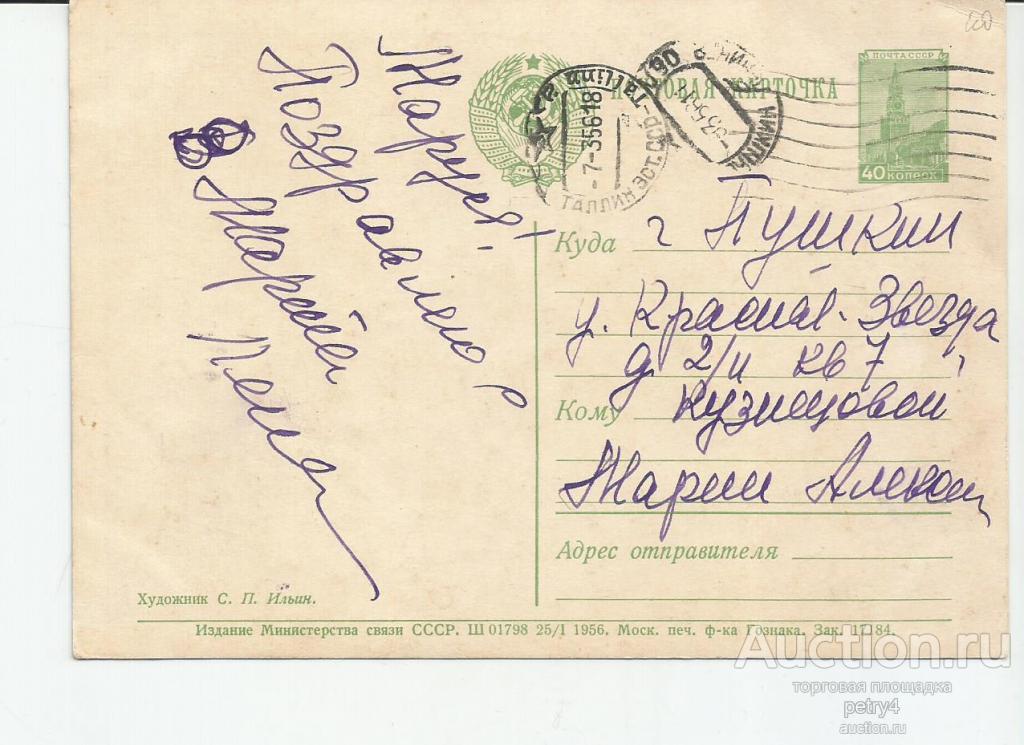 Маруся!
Поздравляю
8 Марта
Лена
ПОЧТОВАЯ КАРТОЧКА
ПОЧТА СССР
40 КОПЕЕК
Tallinn
-7-3 56 18
ТАЛЛИН ЭСТ. ССР
Куда г Пушкин
у. Красной Звезда
д 2/11 кв 7
Кому Кузнецовой
Марии Алекс
Адрес отправителя
Художник С. П. Ильин.
Издание Министерства связи СССР. Ш 01798 25/I 1956. Моск. печ. ф-ка Гознака. Зак. 17184.
Auction.ru
торговая площадка
petry4
auction.ru